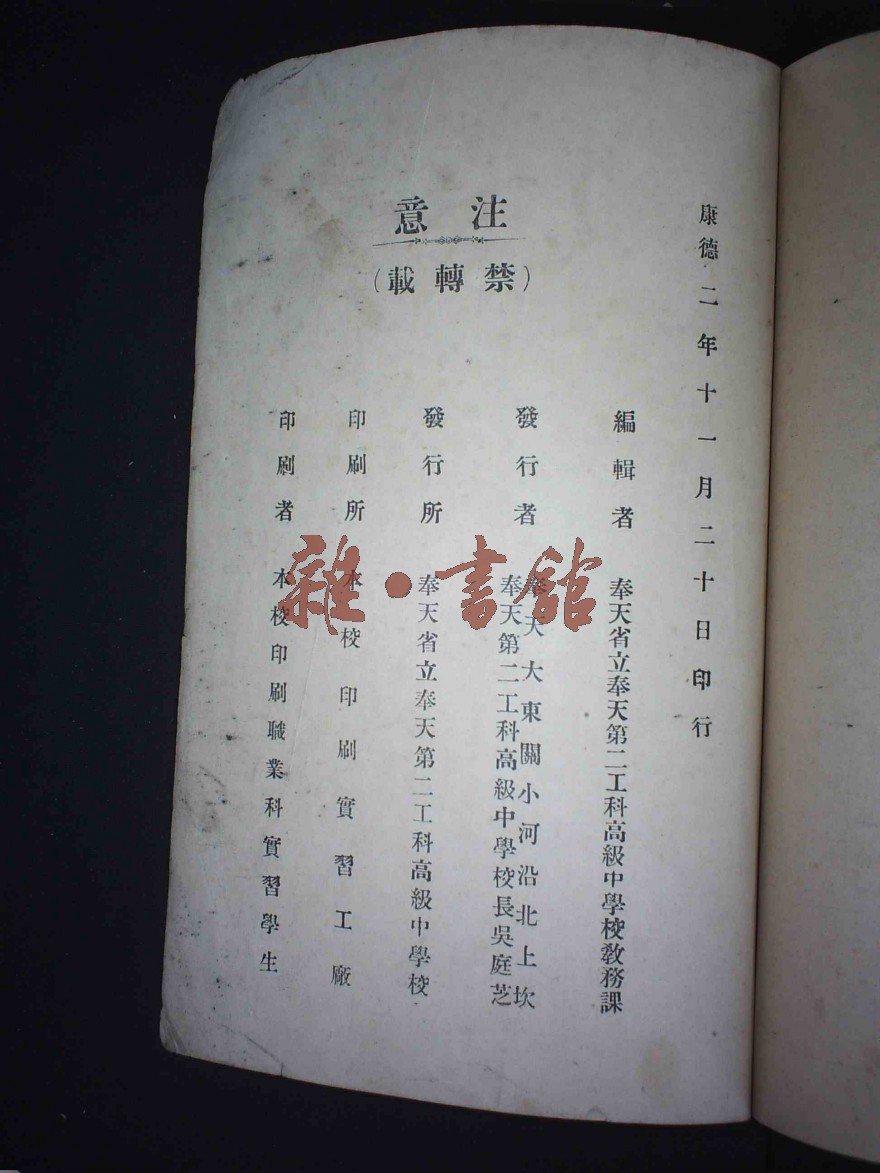 康德二年十一月二十日印行
注意
(禁轉載)
編輯者 奉天省立奉天第二工科高級中學校教務課
發行者 奉天大東關小河沿北上坎
奉天第二工科高級中學校長吳庭芝
發行所 奉天省立奉天第二工科高級中學校
印刷所 本校印刷實習工廠
印刷者 本校印刷職業科實習學生
雜·書館